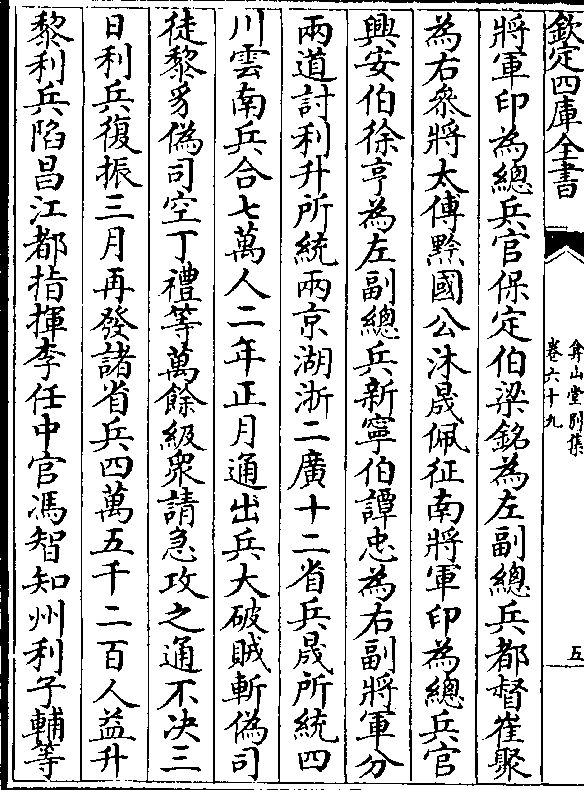 欽定四庫全書
弇山堂別集
卷六十九
五
將軍印為總兵官保定伯梁銘為左副總兵都督崔聚
為右叅將太傅黔國公沐晟佩征南將軍印為總兵官
興安伯徐亨為左副總兵新寧伯譚忠為右副將軍分
兩道討利升所統兩京湖浙二廣十二省兵晟所統四
川雲南兵合七萬人二年正月通出兵大破賊斬偽司
徒黎豸偽司空丁禮等萬餘級衆請急攻之通不决三
日利兵復振三月再發諸省兵四萬五千二百人益升
黎利兵陷昌江都指揮李任中官馮智知州利子輔等